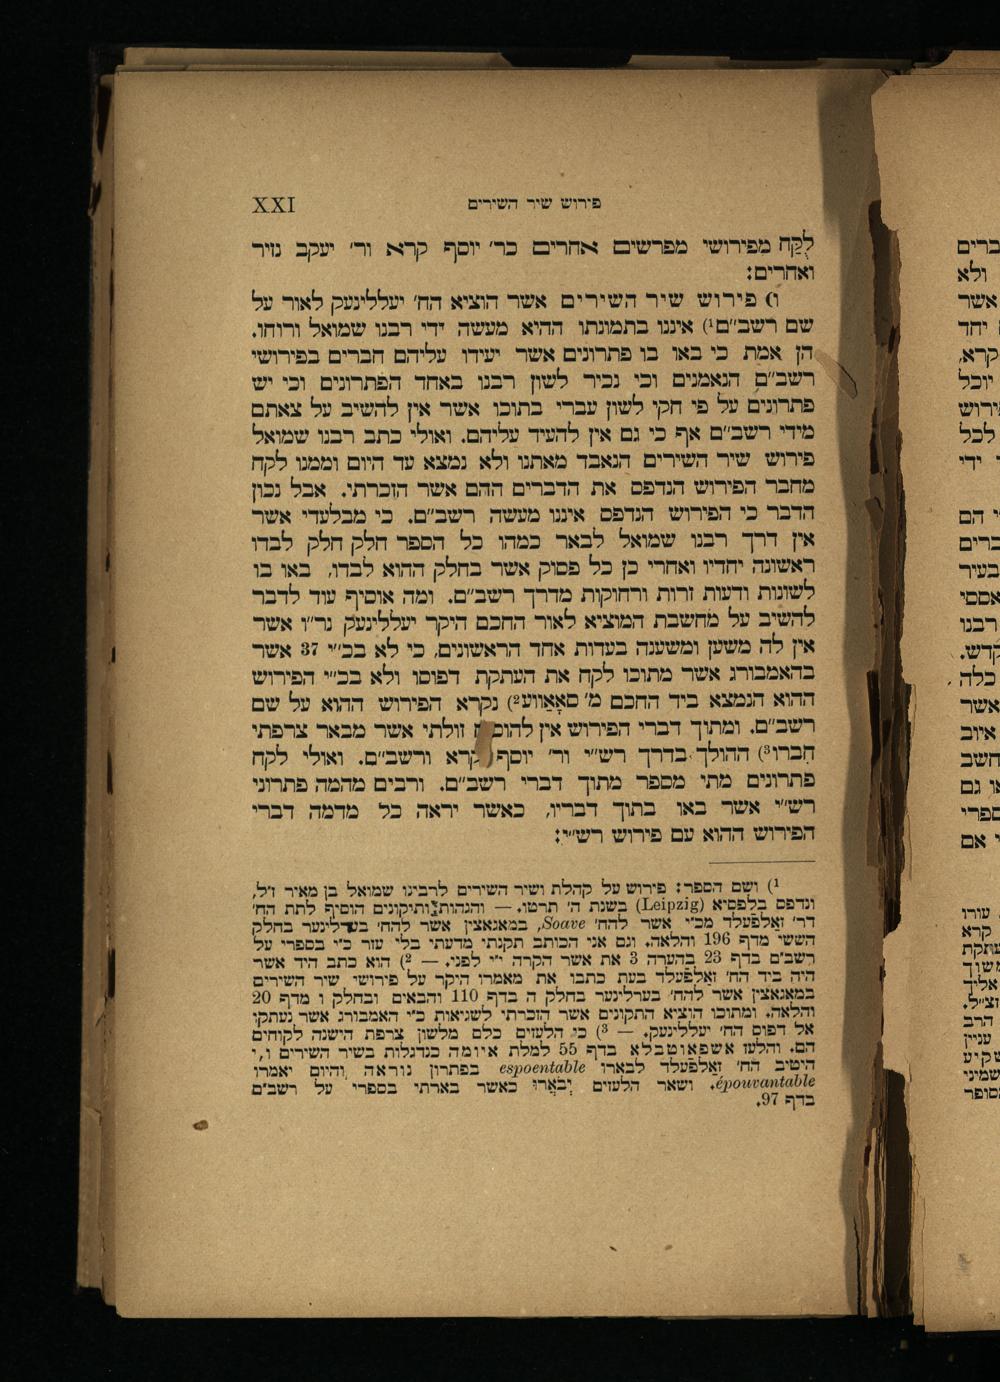 פירוש שיר השירים XXI
לֻקַּח מפירושי מפרשים אחרים כר׳ יוסף קרא ור׳ יעקב נזיר
ואחרים:
ו) פירוש שיר השירים אשר הוציא הח׳ יעללינעק לאור על
שם רשב״ם¹) איננו בתמונתו ההיא מעשה ידי רבנו שמואל ורוחו.
הן אמת כי באו בו פתרונים אשר יעידו עליהם חברים בפירושי
רשב״ם הנאמנים וכי נכיר לשון רבנו באחד הפתרונים וכי יש
פתרונים על פי חקי לשון עברי בתוכו אשר אין להשיב על צאתם
מידי רשב״ם אף כי גם אין להעיד עליהם. ואולי כתב רבנו שמואל
פירוש שיר השירים הנאבד מאתנו ולא נמצא עד היום וממנו לקח
מחבר הפירוש הנדפס את הדברים ההם אשר הזכרתי. אבל נכון
הדבר כי הפירוש הנדפס איננו מעשה רשב״ם. כי מבלעדי אשר
אין דרך רבנו שמואל לבאר כמהו כל הספר חלק חלק לבדו
ראשונה יחדיו ואחרי כן כל פסוק אשר בחלק ההוא לבדו, באו בו
לשונות ודעות זרות ורחוקות מדרך רשב״ם. ומה אוסיף עוד לדבר
להשיב על מחשבת המוציא לאור החכם היקר יעללינעק נר״ו אשר
אין לה משען ומשענה בעדות אחד הראשונים, כי לא בכ״י 37 אשר
בהאמבורג אשר מתוכו לקח את העתקת דפוסו ולא בכ״י הפירוש
ההוא הנמצא ביד החכם מ׳ סאָאַווע²) נקרא הפירוש ההוא על שם
רשב״ם. ומתוך דברי הפירוש אין זולתי אשר מבאר צרפתי
חברו³) ההולך בדרך רש״י ור׳ יוסף קרא ורשב״ם. ואולי לקח
פתרונים מתי מספר מתוך דברי רשב״ם. ורבים מהמה פתרוני
רש״י אשר באו בתוך דבריו, כאשר יראה כל מדמה דברי
הפירוש ההוא עם פירוש רש״י:
¹) ושם הספר: פירוש על קהלת ושיר השירים לרבינו שמואל בן מאיר ז״ל,
ונדפס בלפסיא (Leipzig) בשנת ה׳ תרטו. — והגהות ותיקונים הוסיף לתת הח׳
דר׳ זאַלפעלד מכ״י אשר להח׳ Soave, במאגאצין אשר להח׳ בערלינער בחלק
הששי מדף 196 והלאה. וגם אני הכותב תקנתי מדעתי בלי עזר כ״י בספרי על
רשב״ם בדף 23 בהערה 3 את אשר הקרה י״י לפני. — ²) הוא כתב היד אשר
היה ביד הח׳ זאַלפעלד בעת כתבו את מאמרו היקר על פירושי שיר השירים
במאגאצין אשר להח׳ בערלינער בחלק ה בדף 110 והבאים ובחלק ו מדף 20
והלאה. ומתוכו הוציא התקונים אשר הזכרתי לשגיאות כ״י האמבורג אשר נעתקו
אל דפוס הח׳ יעללינעק. — ³) כי הלעזים כלם מלשון צרפת הישנה לקוחים
הם. והלעז אשפאוטבלא בדף 55 למלת איומה כנדגלות בשיר השירים ו,י
היטיב הח׳ זאַלפעלד לבארו espoentable בפתרון נוראה והיום יאמרו
épouvantable. ושאר הלעזים יְבֹאֲרוּ כאשר בארתי בספרי על רשב״ם
בדף 97.
ברים
ולא
אשר
יחד
קרא,
יוכל
ירוש
לכל
ידי
הם
ברים
בעיר
אססי
רבנו
קדש.
כלה
אשר
איוב
חשב
גם
ספרי
אם
עורו
קרא
עתקת
משוך
אליך
זצ״ל.
הרב
עניין
שקיע
שמיני
סופר